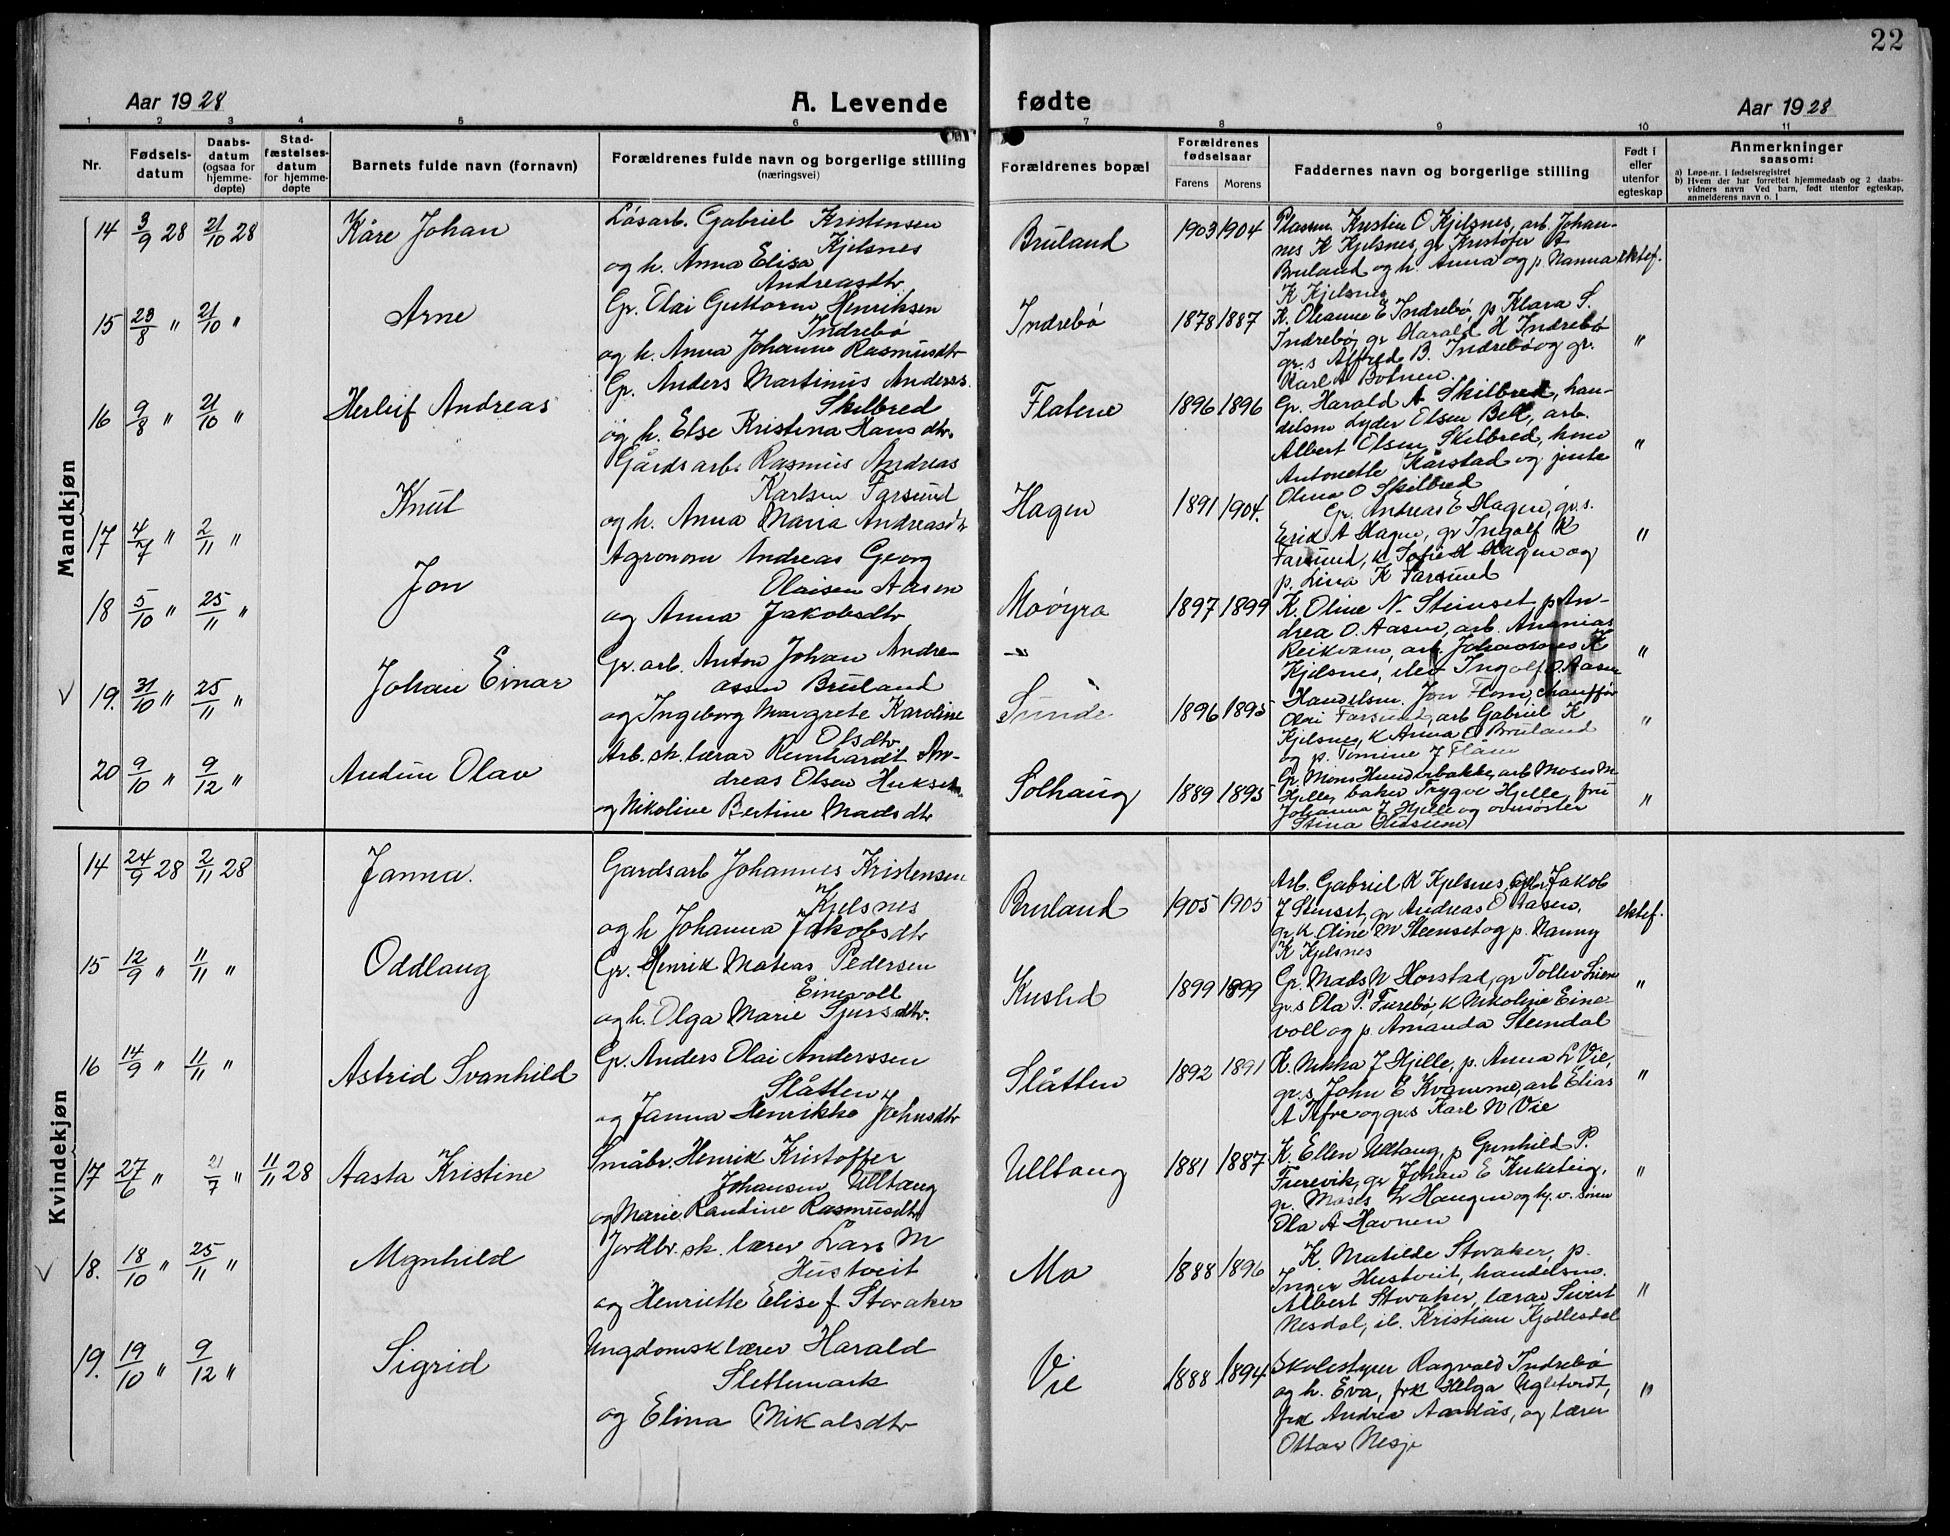 22
Aar 1928
A. Levende
fødte
Aar 1928
1 2 3 4 5 6 7 8 9 10 11
Nr.
Fødsels-
datum
Daabs-
datum
(ogsaa for
hjemme-
døpte)
Stad-
fæstelses-
datum
for hjemme-
døpte
Barnets fulde navn (fornavn)
Forældrenes fulde navn og borgerlige stilling
(næringsvei)
Forældrenes bopæl
Forældrenes
fødselsaar
Farens Morens
Faddernes navn og borgerlige stilling
Født i
eller
utenfor
egteskap
Anmerkninger
saasom:
a) Løpe-nr. i fødselsregistret
b) Hvem der har forrettet hjemmedaab og 2 daabs-
vidners navn Ved barn, født utenfor egteskap,
anmelderens navn o. l
Mandkjøn
14 3/9 28 21/10 28
Kåre Johan
Løsarb. Gabriel Kristensen
Kjelsnes
og h. Anna Elisa
Andreasdtr
Bruland
1903 1904
Plassm Kristen O Kjelsnes, arb. Johan-
nes K Kjelsnes, gr Kristofer A
Bruland og h. Anna og p. Nanna
K Kjelsnes
ektef.
15 23/8 " 21/10 "
Arne
Gr. Olai Guttorm Henriksen
Indrebø
og h. Anna Johanne Rasmusdtr
Indrebø
1878 1887
K. Oleanne E Indrebø, p Klara S.
Indrebø, gr Harald H Indrebø
gr. s Alfred B. Indrebø og gr.
Karl A Botnen.
"
16 9/8 " 21/10 "
Herleif Andreas
Gr. Anders Martinus Anderss.
Skilbred
og h. Else Kristina Hansdtr.
Flatene
1896 1896
Gr. Harald A Skilbred, han-
delsm Lyder Olsen Bell, arb.
Albert Olsen Skilbred, kone
Antonette Kårstad og jente
Olina O Skilbred
"
17 4/7 " 2/11 "
Knut
Gårdsarb. Rasmus Andreas
Karlsen Farsund
og h. Anna Maria Andreasdtr
Hagen
1891 1904.
Gr. Andreas E Hagen, gr. s.
Erid A Hagen, gr Ingolf K
Farsund, k Sofie H Hagen og
p. Lina K Farsund
"
18 5/10 " 25/11 "
Jon
Agronom Andreas Georg
Olaisen Aasen
og Anna Jakobsdtr
Movøyra
1897 1899
K. Oline N. Steinset, p An-
drea O. Aasen, arb. Ananias
Reikvam, arb. Johannes K
Kjelsnes, elev Ingolf O. Aasen
"
√ 19. 31/10 " 25/11 "
Johan Einar
Gr. arb. Anton Johan Andre-
assen Bruland
og Ingeborg Margrete Karoline
Olsdtr
- "
Sunde
1896 1895
Handelsm. Jon Flom, chauffør
Olai Farsund, arb Gabriel K
Kjelsnes, k Anna O Bruland
og p. Tomine J Flåm
"
20 9/10 " 9/12 "
Audun Olav
Arb. sk. lærar Reinhardt An-
dreas Olsen Hukset.
og Nikoline Bertine Madsdtr
Solhaug
1889 1895
Gr. Mons Hundsbakke, arb Moses M
Hjelle, baker Trygve Hjelle, fru
Johanna J Hjelle og oversøster
Stina
"
Kvindekjøn
14 24/9 28 2/11 28
Janna.
Gardsarb Johannes Kristensen
Kjelsnes
og h Johanna Jakobsdtr
Bruland
1905 1905
Arb. Gabriel K Kjelsnes, Jakob
J Steinset, gr Andreas O Aasen,
gr. k. Oline N Steinset og p. Nanny
K Kjelsnes
ektef.
15 12/9 " 11/11 "
Oddlaug
Gr. Henrik Matias Pedersen
Einevoll
og h. Olga Marie Sjursdtr.
Kusld
1899 1899
Gr. Mads N Horstad, gr Tollev Lien
gr. s Ola P. Furebø, k Nikoline Eine-
voll og p Amanda Steindal
"
16 14/9 " 11/11 "
Astrid Svanhild
Gr. Anders Olai Anderssen
Slåtten
og Janna Henrikke Johnsdtr
Slåtten
1892 1891
K. Nikka J Hjelle, p. Anna L Vie,
gr. s John E Kvamme, arb Elias
A Tefre og gr s Karl N Vie
"
17 27/6 " 21/7 " 11/11 28
Aasta Kristine
Småbr. Henrik Kristoffer
Johansen Ulltang
og Marie Randine Rasmusdtr
Ulltang
1881 1887
K. Ellen Ulltang, p Gunhild P.
Furevik, gr Johan E Kusleig,
gr. Moses L Haugen og kj. v. sønn
Ola A Havnen
"
√ 18. 18/10 " 25/11 "
Magnhild
Jordbr. sk. lærer Lars M
Hustveit
og Henriette Elise f. Storaker
Mo
1888 1896
K. Matilde Storaker, p.
Inger Hustveit, handelsm.
Albert Storaker, lærar Sivert
Nesdal, ib. Kristian Kjellesdal
"
19. 19/10 " 9/12 "
Sigrid
Ungdomsk lærer Harald
Slettemark
og Elina Nikolsdtr
Vie
1888 1894
Skolestyrer Ragvald Indrebø
og h. Eva, frk Helga Ugletvedt,
frk Andrea Aardås, og lærer
Ottar Nesje
"